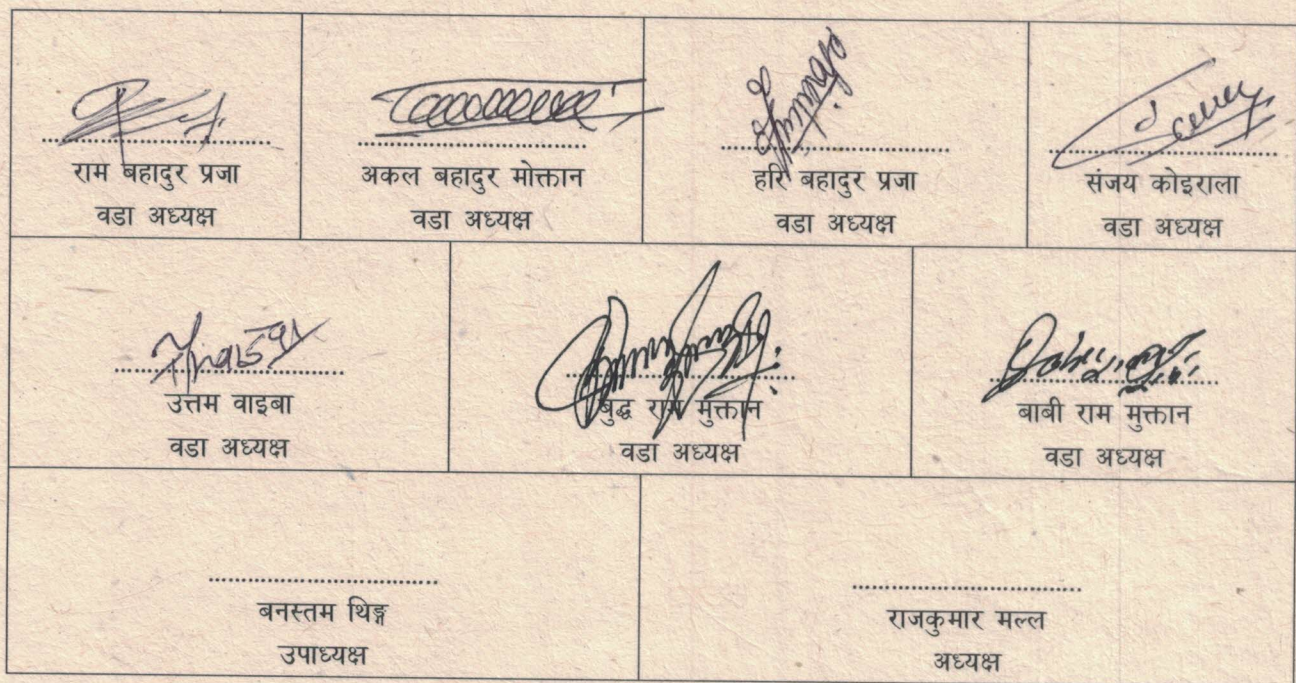 राम बहादुर प्रजा
वडा अध्यक्ष
अकल बहादुर मोक्तान
वडा अध्यक्ष
हरि बहादुर प्रजा
वडा अध्यक्ष
संजय कोइराला
वडा अध्यक्ष
उत्तम वाइबा
वडा अध्यक्ष
बुद्ध राम मुक्तान
वडा अध्यक्ष
बाबी राम मुक्तान
वडा अध्यक्ष
बनस्तम थिङ्ग
उपाध्यक्ष
राजकुमार मल्ल
अध्यक्ष